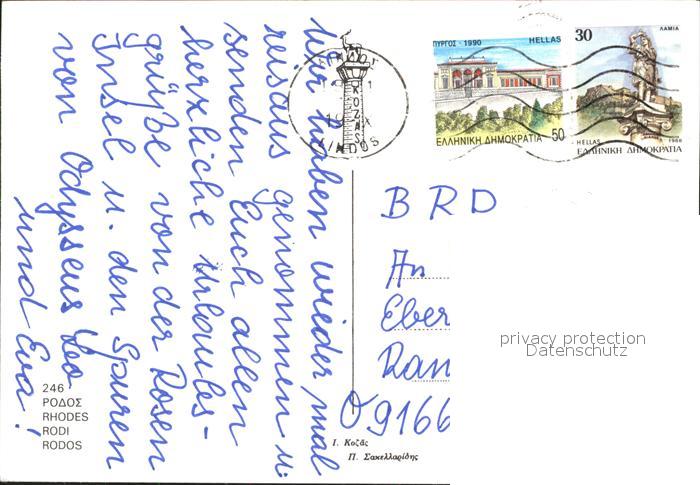 Wir haben wieder mal
reisaus genommen u.
senden Euch allen
herzliche Urlaubs-
grüße von der Rosen
Insel u. den Spuren
von Odysseus Leo
und Eva!
246
ΡΟΔΟΣ
RHODES
RODI
RODOS
ΠΥΡΓΟΣ · 1990
HELLAS
ΕΛΛΗΝΙΚΗ ΔΗΜΟΚΡΑΤΙΑ 50
30
ΛΑΜΙΑ
HELLAS 1988
ΕΛΛΗΝΙΚΗ ΔΗΜΟΚΡΑΤΙΑ
BRD
An
Eber
Ran
09166
privacy protection
Datenschutz
Ι. Κοζᾶς
Π. Σακελλαρίδης